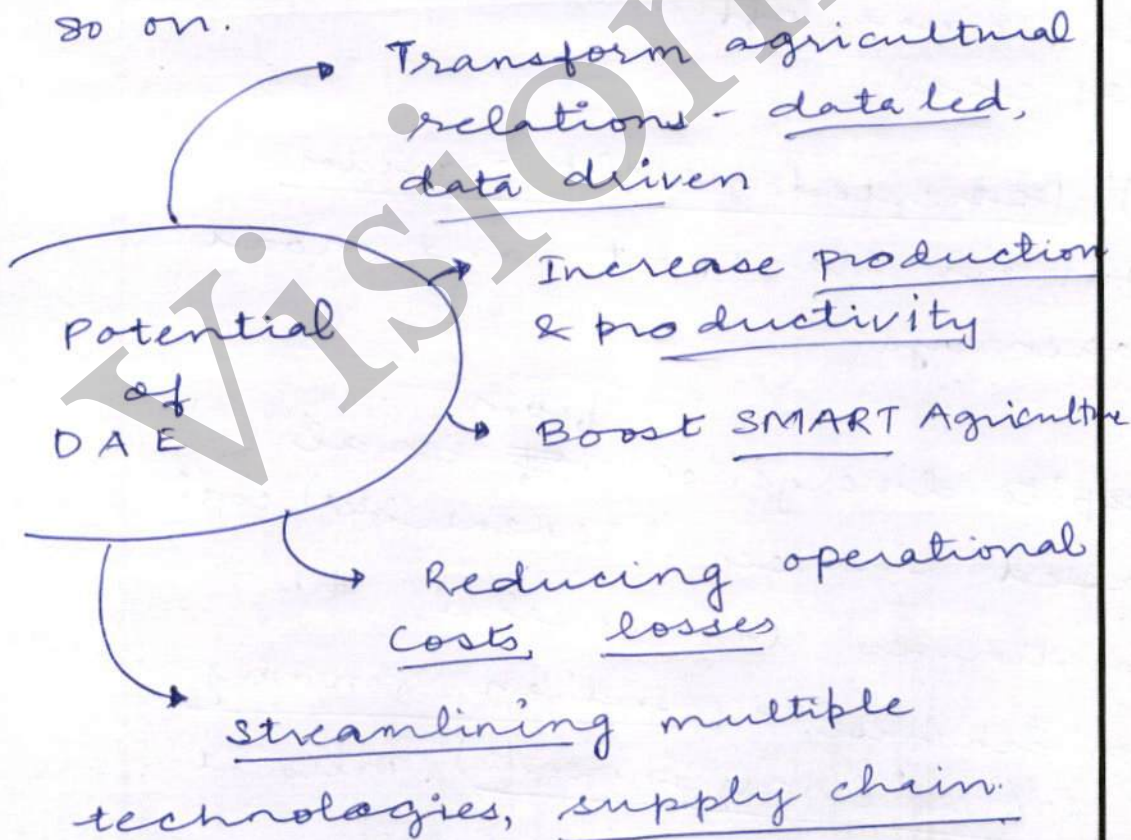 so on.
Transform agricultural
relations - data led,
data driven
Increase production
& productivity
Potential
of
DAE
Boost SMART Agriculture
Reducing operational
costs, losses
Streamlining multiple
technologies, supply chain.
Vision